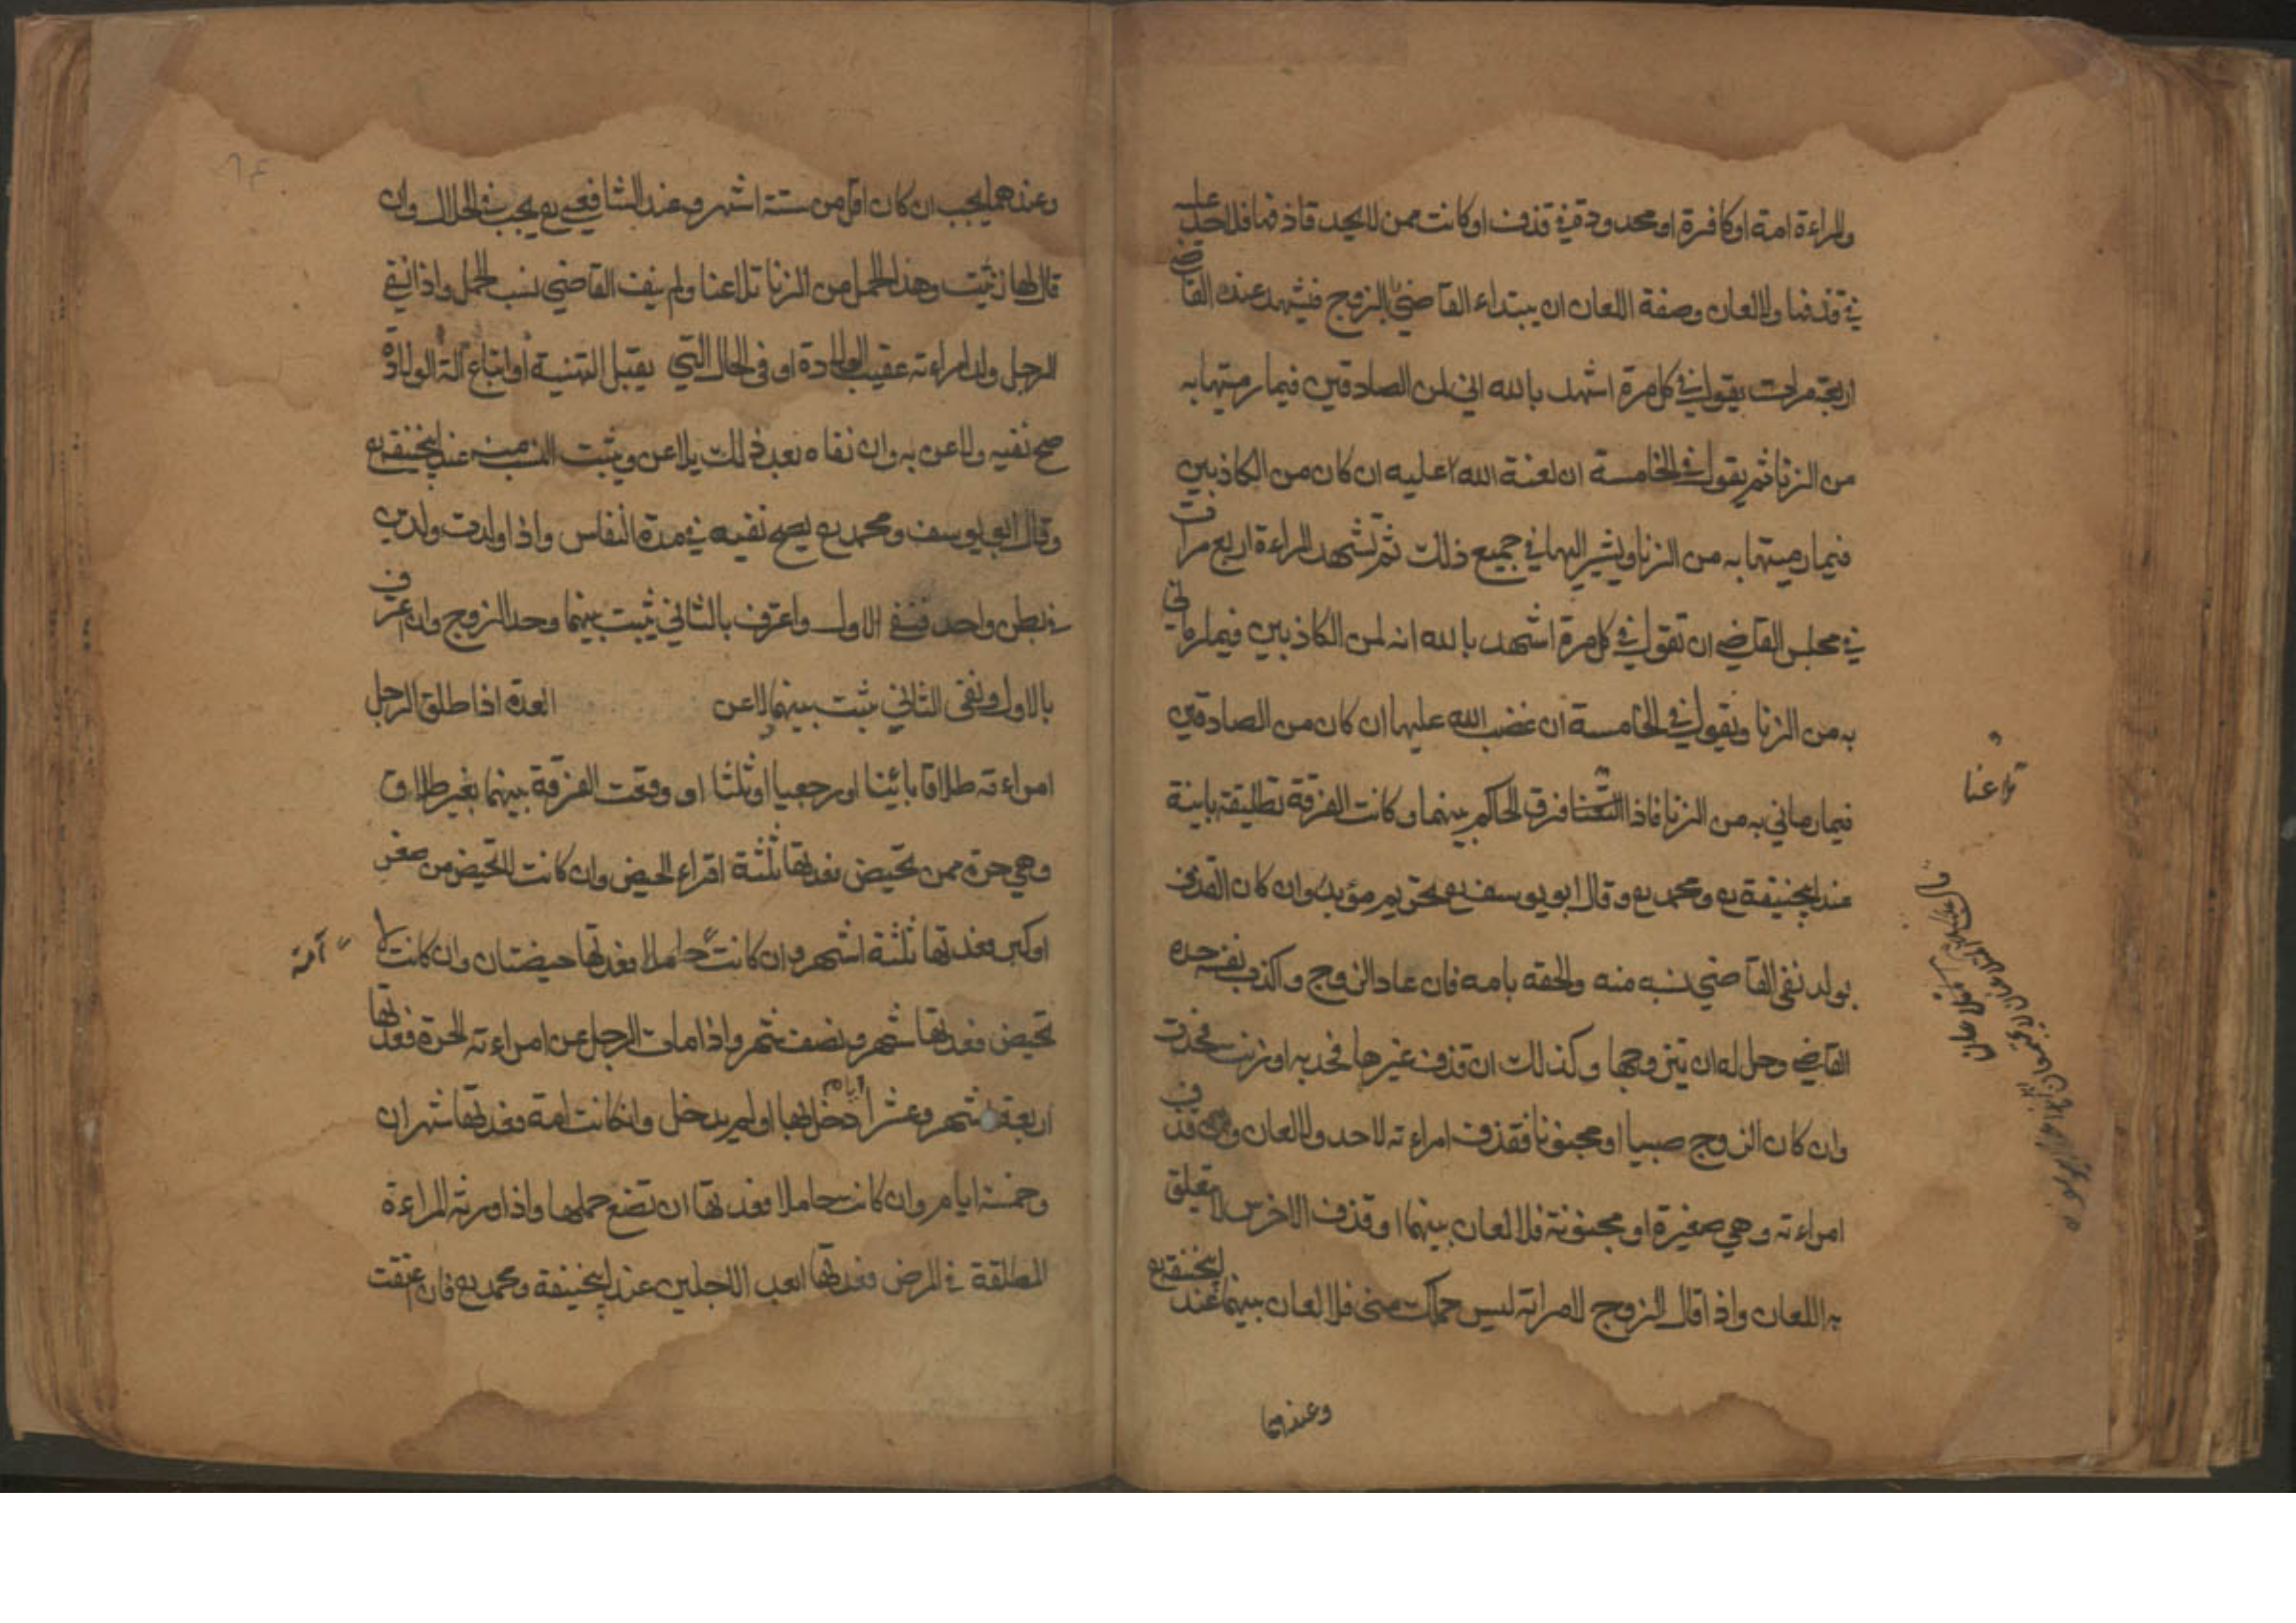 والمراءة امة او كافرة او محدودة في قذف او كانت ممن لا يحد قاذفها فلا حد عليه
في قذفها ولا لعان وصفة اللعان ان يبتداء القاضي بالزوج فيشهد عند القاضي
اربع مرات يقول في كل مرة اشهد بالله اني لمن الصادقين فيما رميتها به
من الزنا ثم يقول في الخامسة ان لعنة الله عليه ان كان من الكاذبين
فيما رميتها به من الزنا ويشير اليها في جميع ذلك ثم تشهد المراءة اربع مرات
في مجلس القاضي ان تقول في كل مرة اشهد بالله انه لمن الكاذبين فيما رماني
به من الزنا وتقول في الخامسة ان غضب الله عليها ان كان من الصادقين
فيما رماني به من الزنا فاذا التعنا فرق الحاكم بينهما وكانت الفرقة تطليقة باينة
عند ابيحنيفة رح ومحمد رح وقال ابو يوسف رح تحريم مؤبد وان كان القذف
بولد نفى القاضي نسبه منه والحقه بامه فان عاد الزوج واكذب نفسه حده
القاضي وحل له ان يتزوجها وكذلك ان قذف غيرها فحد به او زنت فحدت
وان كان الزوج صبيا او مجنونا فقذف امراءته لا حد ولا لعان وان قذف
امراءته وهي صغيرة او مجنونة فلا لعان بينهما او قذف الاخرس لا يتعلق
به اللعان واذا قال الزوج لامراته ليس حملك مني فلا لعان بينهما عند ابيحنيفة رح
وعندهما
تلاعنا
وعندهما يجب ان كان اقل من ستة اشهر وعند الشافعي رح يجب في الحال وان
قال لها زنيت وهذا الحمل من الزنا تلاعنا ولم ينف القاضي نسب الحمل واذا نفى
الرجل ولد امراءته عقيب الولادة او في الحال التي يقبل التهنية او ابتاع الة الولادة
صح نفيه ولاعن به وان نفاه بعد ذلك يلاعن ويثبت النسب منه عند ابيحنيفة رح
وقال ابو يوسف ومحمد رح يصح نفيه في مدة النفاس واذا ولدت ولدين
في بطن واحد فنفى الاول واعترف بالثاني يثبت بينهما وحد الزوج وان اعترف
بالاول ونفى الثاني يثبت بينهما ولاعن العدة اذا طلق الرجل
امراءته طلاقا بائينا او رجعيا او ثلثا او وقعت الفرقة بينهما بغير طلاق
وهي حرة ممن تحيض فعدتها ثلثة اقراء الحيض وان كانت لا تحيض من صغر
او كبر فعدتها ثلثة اشهر وان كانت حاملا فعدتها حيضتان وان كانت لا
امة
تحيض فعدتها شهر ونصف شهر واذا مات الرجل عن امراءته الحرة فعدتها
اربعة اشهر وعشرا ايام دخل بها او لم يدخل وانكانت امة فعدتها شهران
وخمسة ايام وان كانت حاملا فعدتها ان تضع حملها واذا ورثة المراءة
المطلقة في المرض فعدتها ابعد الاجلين عند ابيحنيفة ومحمد رح فان عتقت